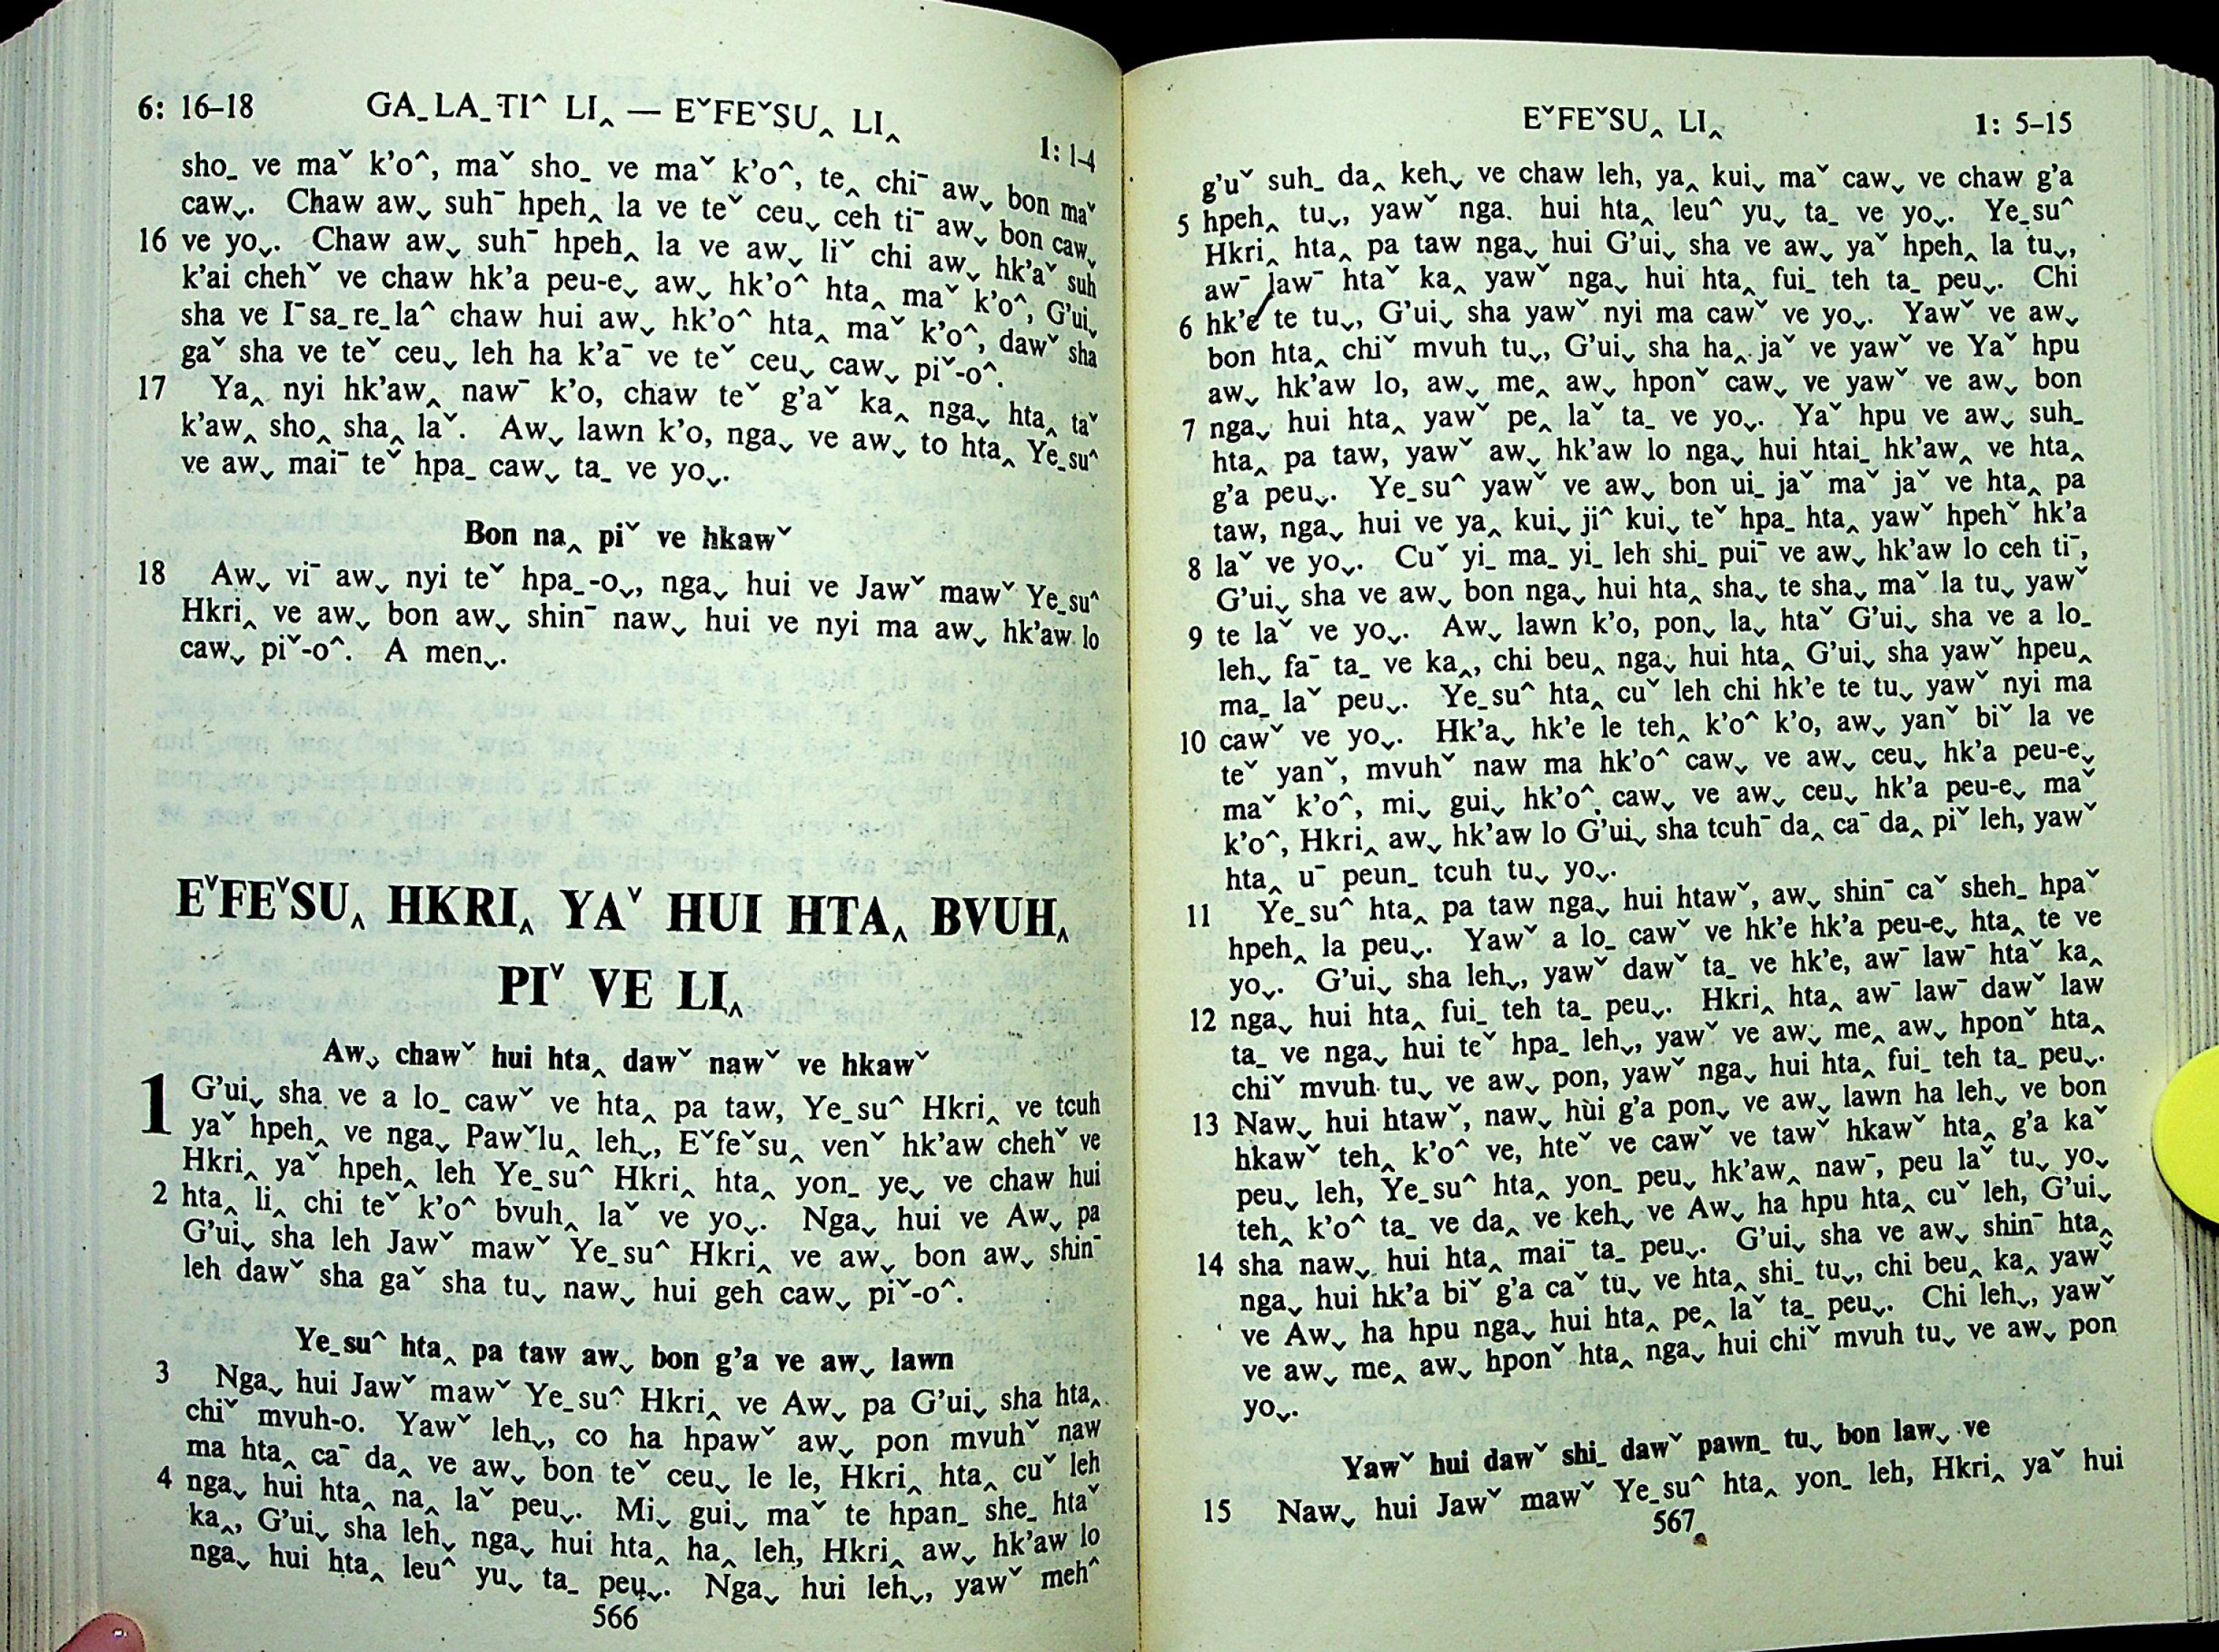 6: 16–18 GA_LA_TI^ LI‸ — EˇFEˇSU‸ LI‸ 1: 1-4
sho_ ve maˇ k'o^, maˇ sho_ ve maˇ k'o^, te‸ chi¯ aw⌄ bon maˇ
caw⌄. Chaw aw⌄ suh¯ hpeh‸ la ve teˇ ceu⌄ ceh ti¯ aw⌄ bon caw⌄
16 ve yo⌄. Chaw aw⌄ suh¯ hpeh‸ la ve aw⌄ liˇ chi aw⌄ hk'aˇ suh
k'ai chehˇ ve chaw hk'a peu-e⌄ aw⌄ hk'o^ hta‸ maˇ k'o^, G'ui⌄
sha ve I¯sa_re_la^ chaw hui aw⌄ hk'o^ hta‸ maˇ k'o^, dawˇ sha
gaˇ sha ve teˇ ceu⌄ leh ha k'a¯ ve teˇ ceu⌄ caw⌄ piˇ-o^.
17 Ya‸ nyi hk'aw‸ naw¯ k'o, chaw teˇ g'aˇ ka‸ nga⌄ hta‸ taˇ
k'aw‸ sho‸ sha‸ laˇ. Aw⌄ lawn k'o, nga⌄ ve aw⌄ to hta‸ Ye_su^
ve aw⌄ mai¯ teˇ hpa_ caw⌄ ta_ ve yo⌄.
Bon na‸ piˇ ve hkawˇ
18 Aw⌄ vi¯ aw⌄ nyi teˇ hpa_-o⌄, nga⌄ hui ve Jawˇ mawˇ Ye_su^
Hkri‸ ve aw⌄ bon aw⌄ shin¯ naw⌄ hui ve nyi ma aw⌄ hk'aw lo
caw⌄ piˇ-o^. A men⌄.
EˇFEˇSU‸ HKRI‸ YAˇ HUI HTA‸ BVUH‸
PIˇ VE LI‸
Aw⌄ chawˇ hui hta‸ dawˇ nawˇ ve hkawˇ
1 G'ui⌄ sha ve a lo_ cawˇ ve hta‸ pa taw, Ye_su^ Hkri‸ ve tcuh
yaˇ hpeh‸ ve nga⌄ Pawˇlu‸ leh⌄, EˇfeˇSu‸ venˇ hk'aw chehˇ ve
Hkri‸ yaˇ hpeh‸ leh Ye_su^ Hkri‸ hta‸ yon_ ye⌄ ve chaw hui
2 hta‸ li‸ chi teˇ k'o^ bvuh‸ laˇ ve yo⌄. Nga⌄ hui ve Aw⌄ pa
G'ui⌄ sha leh Jawˇ mawˇ Ye_su^ Hkri‸ ve aw⌄ bon aw⌄ shin¯
leh dawˇ sha gaˇ sha tu⌄ naw⌄ hui geh caw⌄ piˇ-o^.
Ye_su^ hta‸ pa taw aw⌄ bon g'a ve aw⌄ lawn
3 Nga⌄ hui Jawˇ mawˇ Ye_su^ Hkri‸ ve Aw⌄ pa G'ui⌄ sha hta‸
chiˇ mvuh-o. Yawˇ leh⌄, co ha hpawˇ aw⌄ pon mvuhˇ naw
ma hta‸ ca¯ da‸ ve aw⌄ bon teˇ ceu⌄ le le, Hkri‸ hta‸ cuˇ leh
4 nga⌄ hui hta‸ na‸ laˇ peu⌄. Mi⌄ gui⌄ maˇ te hpan_ she_ htaˇ
ka‸, G'ui⌄ sha leh⌄ nga⌄ hui hta‸ ha‸ leh, Hkri‸ aw⌄ hk'aw lo
nga⌄ hui hta‸ leu^ yu⌄ ta_ peu⌄. Nga⌄ hui leh⌄, yawˇ meh^
566
EˇFEˇSU‸ LI‸ 1: 5–15
g'uˇ suh_ da‸ keh⌄ ve chaw leh, ya‸ kui⌄ maˇ caw⌄ ve chaw g'a
5 hpeh‸ tu⌄, yawˇ nga. hui hta‸ leu^ yu⌄ ta_ ve yo⌄. Ye_su^
Hkri‸ hta‸ pa taw nga⌄ hui G'ui⌄ sha ve aw⌄ yaˇ hpeh‸ la tu⌄,
aw¯ law¯ htaˇ ka‸ yawˇ nga⌄ hui hta‸ fui_ teh ta_ peu⌄. Chi
6 hk'e te tu⌄, G'ui⌄ sha yawˇ nyi ma cawˇ ve yo⌄. Yawˇ ve aw⌄
bon hta‸ chiˇ mvuh tu⌄, G'ui⌄ sha ha‸ jaˇ ve yawˇ ve Yaˇ hpu
aw⌄ hk'aw lo, aw⌄ me‸ aw⌄ hponˇ caw⌄ ve yawˇ ve aw⌄ bon
7 nga⌄ hui hta‸ yawˇ pe‸ laˇ ta_ ve yo⌄. Yaˇ hpu ve aw⌄ suh_
hta‸ pa taw, yawˇ aw⌄ hk'aw lo nga⌄ hui htai_ hk'aw‸ ve hta‸
g'a peu⌄. Ye_su^ yawˇ ve aw⌄ bon ui_ jaˇ maˇ jaˇ ve hta‸ pa
taw, nga⌄ hui ve ya‸ kui⌄ ji^ kui⌄ teˇ hpa_ hta‸ yawˇ hpehˇ hk'a
8 laˇ ve yo⌄. Cuˇ yi_ ma_ yi_ leh shi_ pui¯ ve aw⌄ hk'aw lo ceh ti¯,
G'ui⌄ sha ve aw⌄ bon nga⌄ hui hta‸ sha⌄ te sha⌄ maˇ la tu⌄ yawˇ
9 te laˇ ve yo⌄. Aw⌄ lawn k'o, pon⌄ la⌄ htaˇ G'ui⌄ sha ve a lo_
leh⌄ fa¯ ta_ ve ka‸, chi beu‸ nga⌄ hui hta‸ G'ui⌄ sha yawˇ hpeu‸
ma_ laˇ peu⌄. Ye_su^ hta‸ cuˇ leh chi hk'e te tu⌄ yawˇ nyi ma
10 cawˇ ve yo⌄. Hk'a⌄ hk'e le teh‸ k'o^ k'o, aw⌄ yanˇ biˇ la ve
teˇ yanˇ, mvuhˇ naw ma hk'o^ caw⌄ ve aw⌄ ceu⌄ hk'a peu-e⌄
maˇ k'o^, mi⌄ gui⌄ hk'o^ caw⌄ ve aw⌄ ceu⌄ hk'a peu-e⌄ maˇ
k'o^, Hkri‸ aw⌄ hk'aw lo G'ui⌄ sha tcuh¯ da‸ ca¯ da‸ piˇ leh, yawˇ
hta‸ u¯ peun_ tcuh tu⌄ yo⌄.
11 Ye_su^ hta‸ pa taw nga⌄ hui htawˇ, aw⌄ shin¯ caˇ sheh_ hpaˇ
hpeh‸ la peu⌄. Yawˇ a lo_ cawˇ ve hk'e hk'a peu-e⌄ hta‸ te ve
yo⌄. G'ui⌄ sha leh⌄, yawˇ dawˇ ta_ ve hk'e, aw¯ law¯ htaˇ ka‸
12 nga⌄ hui hta‸ fui_ teh ta_ peu⌄. Hkri‸ hta‸ aw¯ law¯ dawˇ law
ta_ ve nga⌄ hui teˇ hpa_ leh⌄, yawˇ ve aw⌄ me‸ aw⌄ hponˇ hta‸
chiˇ mvuh tu⌄ ve aw⌄ pon, yawˇ nga⌄ hui hta‸ fui_ teh ta_ peu⌄.
13 Naw⌄ hui htawˇ, naw⌄ hui g'a pon⌄ ve aw⌄ lawn ha leh⌄ ve bon
hkawˇ teh‸ k'o^ ve, hteˇ ve cawˇ ve tawˇ hkawˇ hta‸ g'a kaˇ
peu⌄ leh, Ye_su^ hta‸ yon_ peu⌄ hk'aw‸ naw¯, peu laˇ tu⌄ yo⌄
teh‸ k'o^ ta_ ve da‸ ve keh⌄ ve Aw⌄ ha hpu hta‸ cuˇ leh, G'ui⌄
sha naw⌄ hui hta‸ mai¯ ta_ peu⌄. G'ui⌄ sha ve aw⌄ shin¯ hta‸
14 nga⌄ hui hk'a biˇ g'a caˇ tu⌄ ve hta‸ shi_ tu⌄, chi beu‸ ka‸ yawˇ
ve Aw⌄ ha hpu nga⌄ hui hta‸ pe‸ laˇ ta_ peu⌄. Chi leh⌄, yawˇ
ve aw⌄ me‸ aw⌄ hponˇ hta‸ nga⌄ hui chiˇ mvuh tu⌄ ve aw⌄ pon
yo⌄.
Yawˇ hui dawˇ shi_ dawˇ pawn_ tu⌄ bon law⌄ ve
15 Naw⌄ hui Jawˇ mawˇ Ye_su^ hta‸ yon_ leh, Hkri‸ yaˇ hui
567